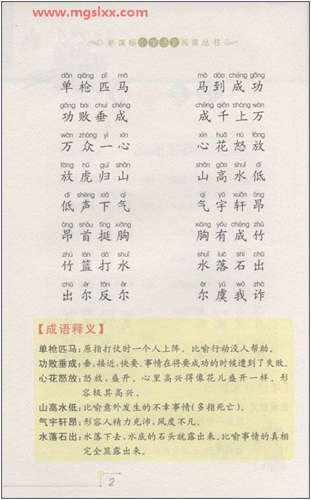 www.mgslxx.com
新课标小学语文阅读丛书
dān qiāng pǐ mǎ mǎ dào chéng gōng
单枪匹马 马到成功
gōng bài chuí chéng chéng qiān shàng wàn
功败垂成 成千上万
wàn zhòng yì xīn xīn huā nù fàng
万众一心 心花怒放
fàng hǔ guī shān shān gāo shuǐ dī
放虎归山 山高水低
dī shēng xià qì qì yǔ xuān áng
低声下气 气宇轩昂
áng shǒu tǐng xiōng xiōng yǒu chéng zhú
昂首挺胸 胸有成竹
zhú lán dá shuǐ shuǐ luò shí chū
竹篮打水 水落石出
chū ěr fǎn ěr ěr yú wǒ zhà
出尔反尔 尔虞我诈
【成语释义】
单枪匹马:原指打仗时一个人上阵。比喻行动没人帮助。
功败垂成:垂,接近,快要。事情在将要成功的时候遭到了失败。
心花怒放:怒放,盛开。心里高兴得像花儿盛开一样。形
容极其高兴。
山高水低:比喻意外发生的不幸事情(多指死亡)。
气宇轩昂:形容人精力充沛,风度不凡。
水落石出:水落下去,水底的石头就露出来。比喻事情的真相
完全显露出来。
2